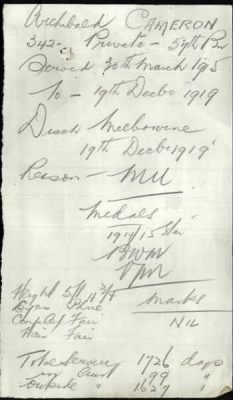 Archibald CAMERON
3425 Private - 57th Bn
Served 30th March 1915
to - 19th Decbr 1919
Disch Melbourne
19th Decbr 1919
Reason - MU
Medals
1914/15 Star
BWM
VM
Height 5ft 4 3/4
Eyes Blue
Complex Fair
Hair Fair
Marks
NIL
Total Service 1726 days
in Aust 99 "
Outside " 1627 "